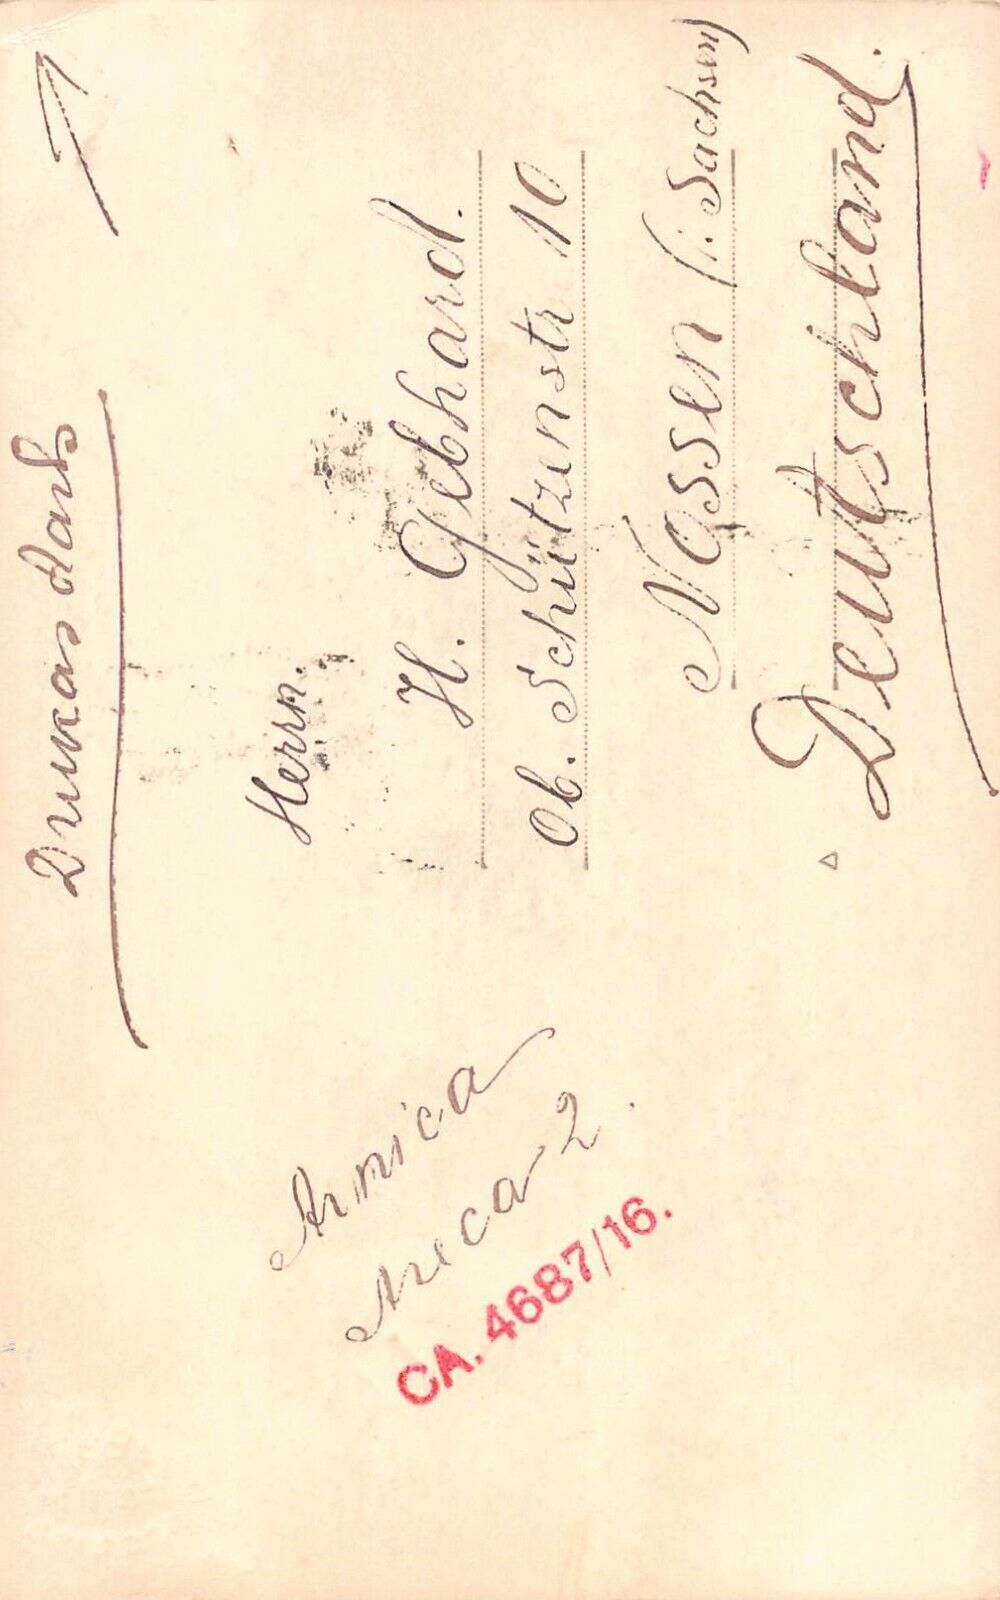 Drukas darbs
Herrn.
H. Gebhardt.
Ob. Schützenstr 10
Nossen (i. Sachsen)
Deutschland.
Arnica
Areca 2.
CA. 4687/16.